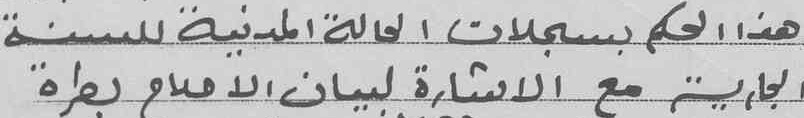 هذا الحكم بسجلات الحالة المدنية للسنة
الجارية مع الاشارة لبيان الاصلاح بطرة